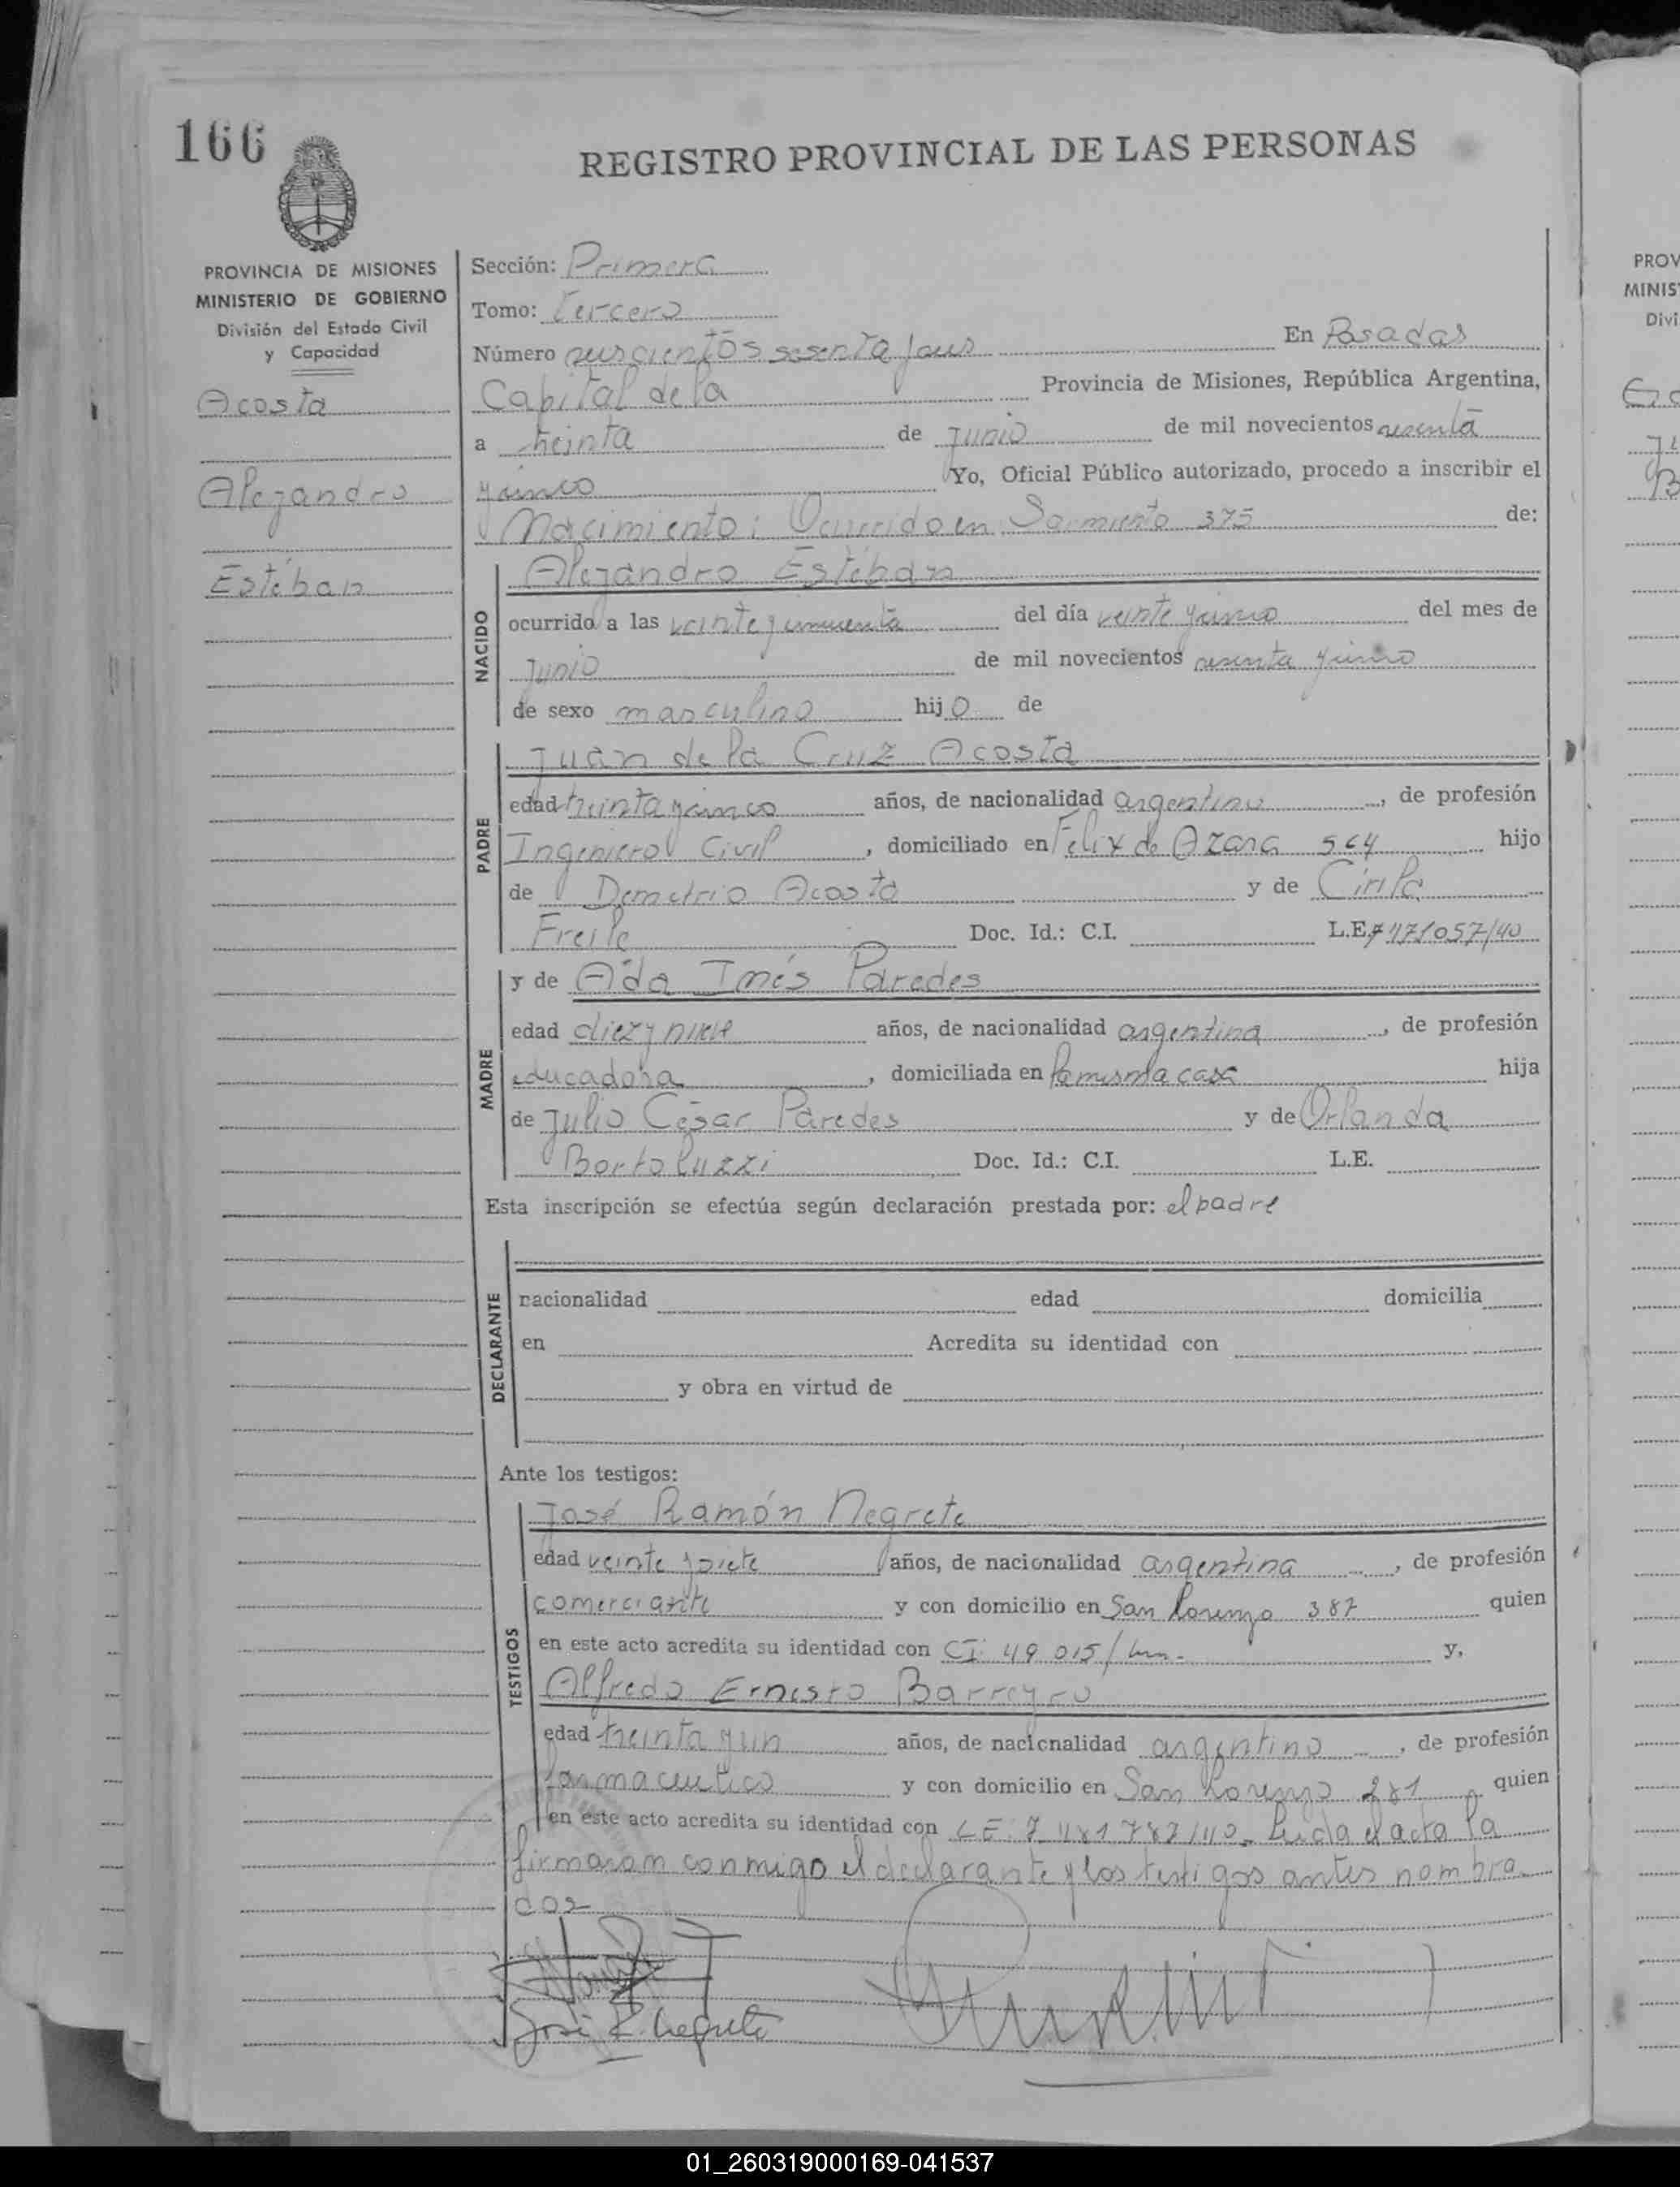 166
REGISTRO PROVINCIAL DE LAS PERSONAS
PROVINCIA DE MISIONES
MINISTERIO DE GOBIERNO
División del Estado Civil
y Capacidad
Acosta
Alejandro
Estéban
Sección: Primera
Tomo: Tercero
Número sesenta En Posadas
Capital de la Provincia de Misiones, República Argentina,
a treinta de junio de mil novecientos sesenta
y cinco Yo, Oficial Público autorizado, procedo a inscribir el
Nacimiento: Ocurrido en Sarmiento 375 de:
NACIDO
Alejandro Estéban
ocurrido a las veinte y cincuenta del día veinte y cinco del mes de
junio de mil novecientos sesenta y cinco
de sexo masculino hijo de
PADRE
Juan de la Cruz Acosta
edad treinta y cinco años, de nacionalidad argentino, de profesión
Ingeniero Civil, domiciliado en Felix de Azara 564 hijo
de Demetrio Acosta y de Cirila
Freile Doc. Id.: C.I. L.E.
MADRE
y de Aída Inés Paredes
edad diez y nueve años, de nacionalidad argentina, de profesión
educadora, domiciliada en la misma casa hija
de Julio César Paredes y de Orlanda
Bortoluzzi Doc. Id.: C.I. L.E.
Esta inscripción se efectúa según declaración prestada por: el padre
DECLARANTE
nacionalidad edad domicilia
en Acredita su identidad con
y obra en virtud de
Ante los testigos:
TESTIGOS
José Ramón Negrete
edad veinte y siete años, de nacionalidad argentina, de profesión
comerciante y con domicilio en San Lorenzo 387 quien
en este acto acredita su identidad con CI: 49 015/ y,
Alfredo Ernesto Barreyro
edad treinta y un años, de nacionalidad argentino, de profesión
farmaceutico y con domicilio en San Lorenzo 281 quien
en este acto acredita su identidad con LE: Leida el acta la
firmaron conmigo el declarante y los testigos antes nombra
dos
José R. Negrete
PROV
MINIS
Divi
01_260319000169-041537